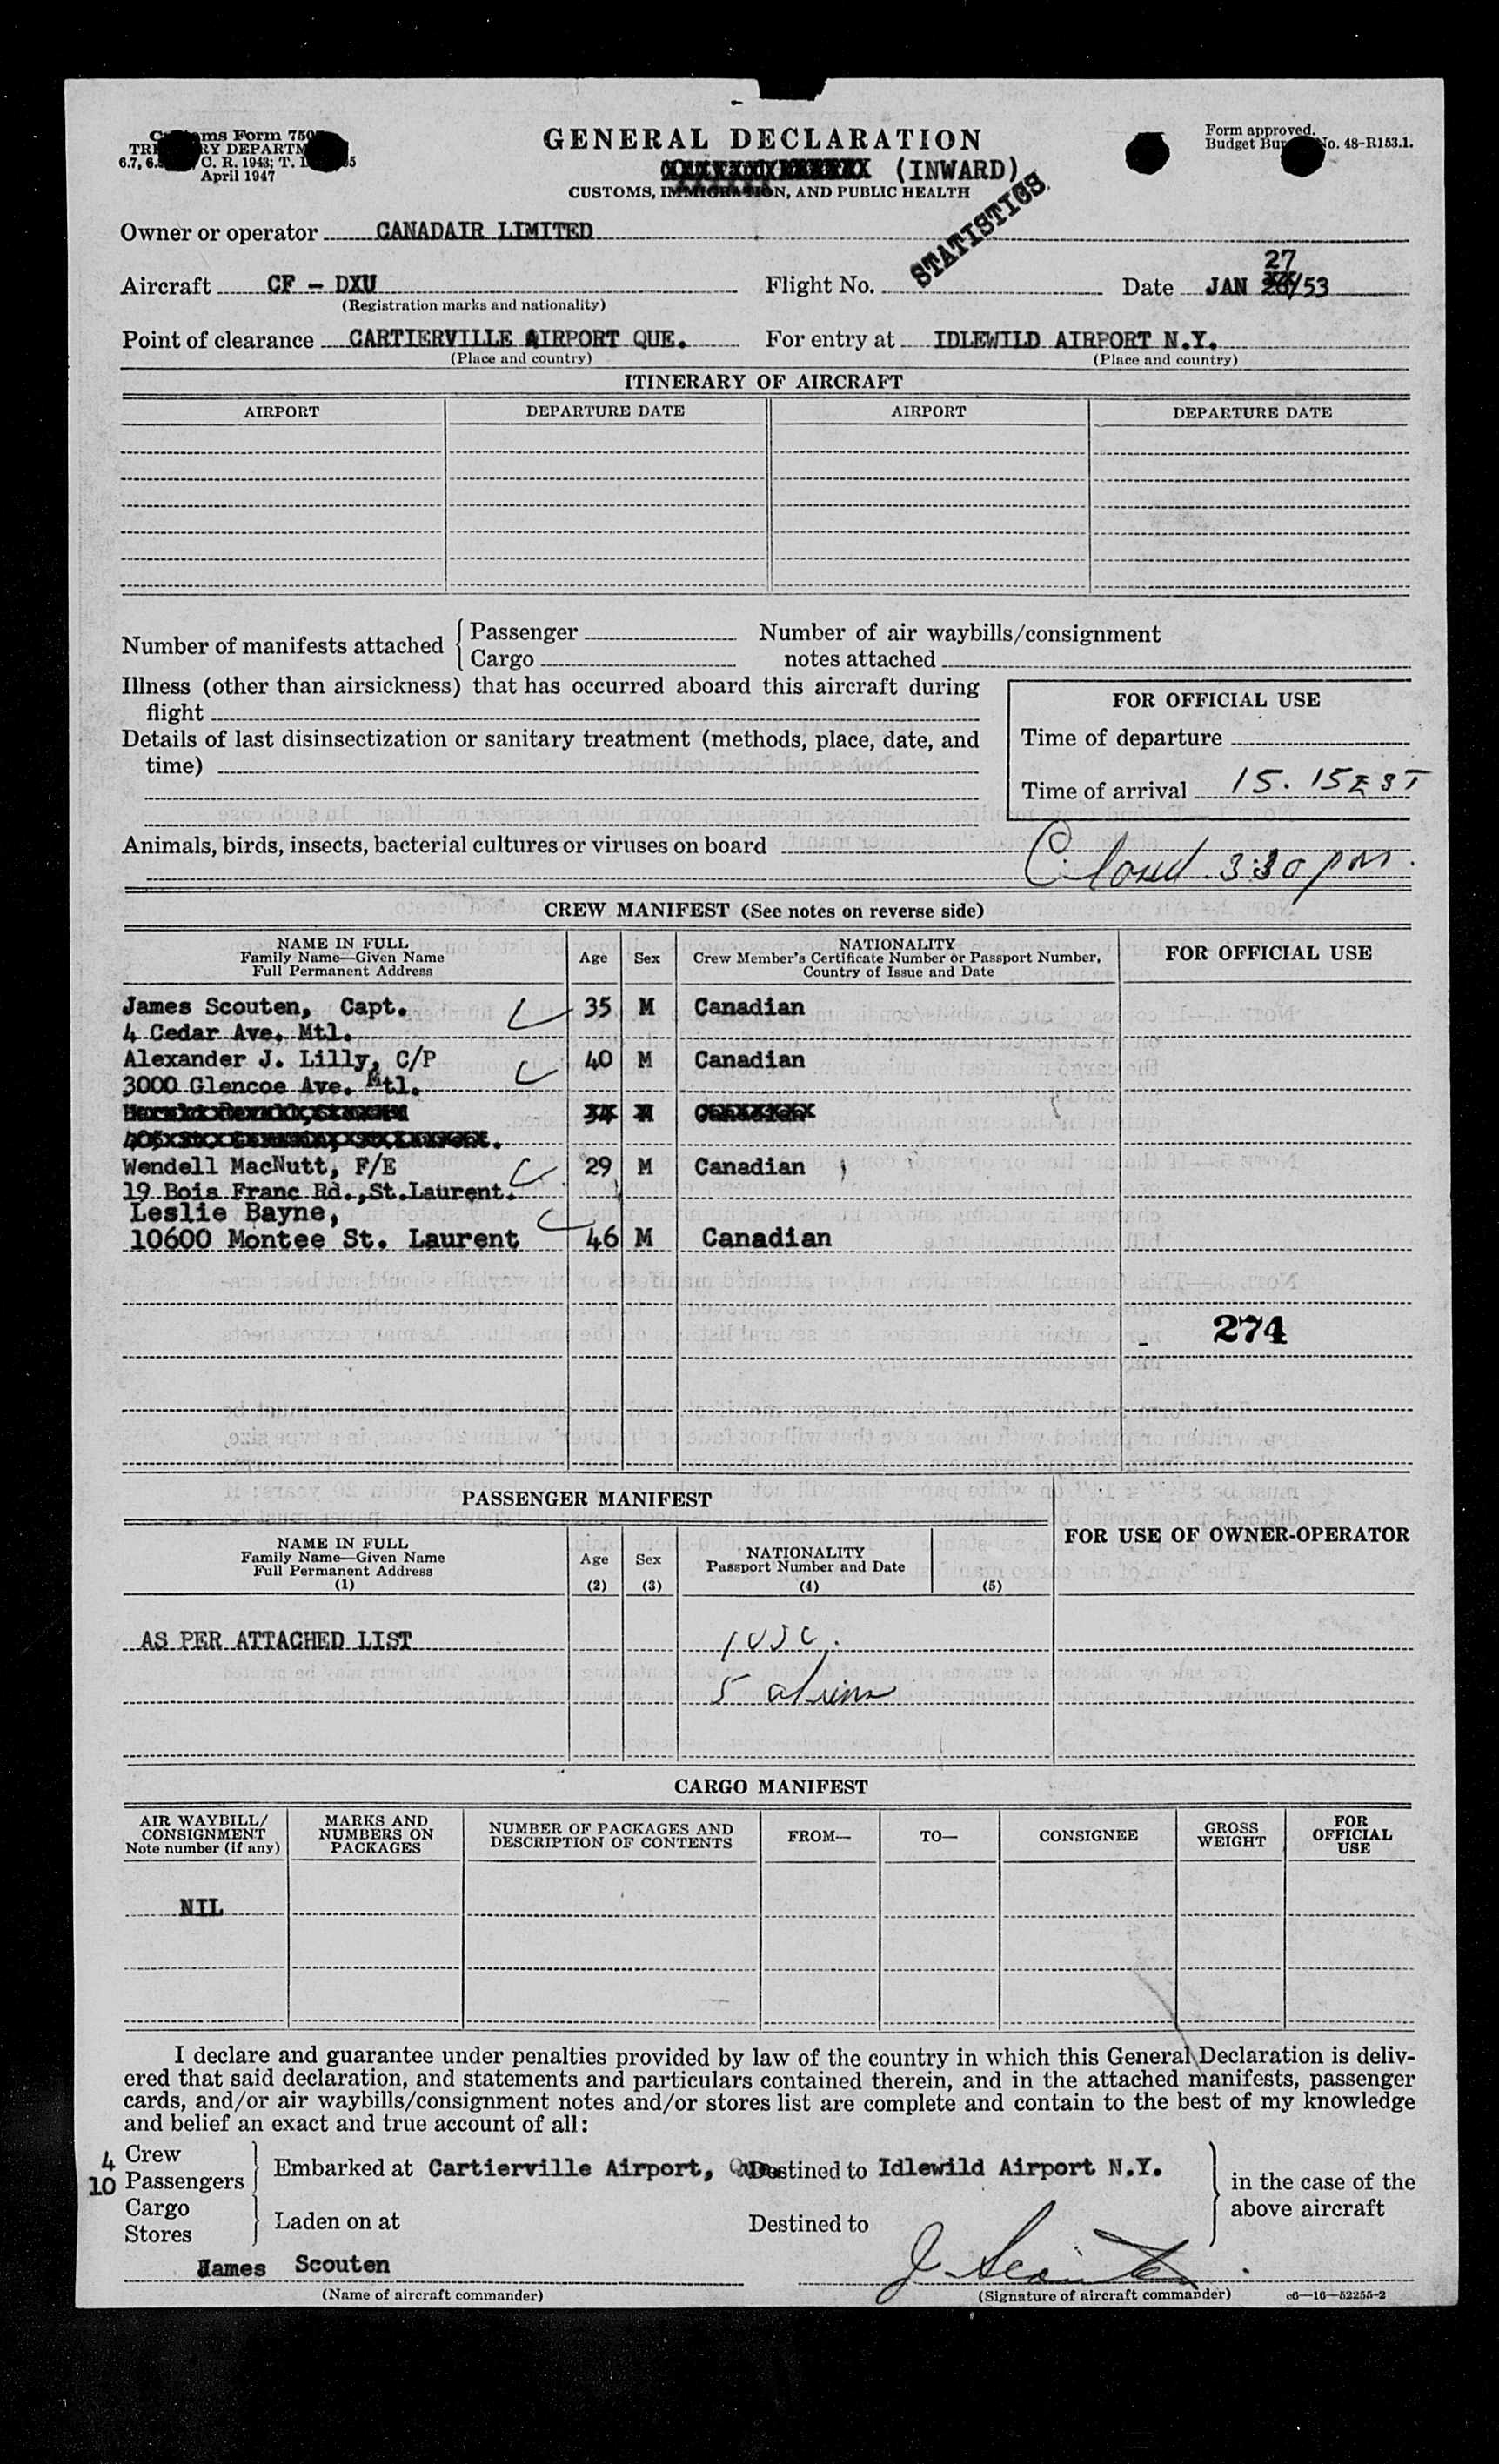 Customs Form 750
TREASURY DEPARTM
6.7, 6. C. R. 1943; T. 5
April 1947
GENERAL DECLARATION
(INWARD)
CUSTOMS, IMMIGRATION, AND PUBLIC HEALTH
STATISTICS
Form approved.
Budget Bureau No. 48-R153.1.
Owner or operator CANADAIR LIMITED
Aircraft CF - DXU Flight No. Date JAN 27 /53
(Registration marks and nationality)
Point of clearance CARTIERVILLE AIRPORT QUE. For entry at IDLEWILD AIRPORT N.Y.
(Place and country) (Place and country)
ITINERARY OF AIRCRAFT
AIRPORT DEPARTURE DATE AIRPORT DEPARTURE DATE
Number of manifests attached Passenger Number of air waybills/consignment
Cargo notes attached
Illness (other than airsickness) that has occurred aboard this aircraft during
flight
Details of last disinsectization or sanitary treatment (methods, place, date, and
time)
FOR OFFICIAL USE
Time of departure
Time of arrival 15.15 EST
Animals, birds, insects, bacterial cultures or viruses on board
3:30 pm.
CREW MANIFEST (See notes on reverse side)
NAME IN FULL
Family Name—Given Name
Full Permanent Address
Age Sex
NATIONALITY
Crew Member's Certificate Number or Passport Number,
Country of Issue and Date
FOR OFFICIAL USE
James Scouten, Capt. 35 M Canadian
4 Cedar Ave. Mtl.
Alexander J. Lilly, C/P 40 M Canadian
3000 Glencoe Ave. Mtl.
Wendell MacNutt, F/E 29 M Canadian
19 Bois Franc Rd.,St.Laurent.
Leslie Bayne,
10600 Montee St. Laurent 46 M Canadian
274
PASSENGER MANIFEST
FOR USE OF OWNER-OPERATOR
NAME IN FULL
Family Name—Given Name
Full Permanent Address
(1)
Age
(2)
Sex
(3)
NATIONALITY
Passport Number and Date
(4) (5)
AS PER ATTACHED LIST 1 USC.
5 aliens
CARGO MANIFEST
AIR WAYBILL/
CONSIGNMENT
Note number (if any)
MARKS AND
NUMBERS ON
PACKAGES
NUMBER OF PACKAGES AND
DESCRIPTION OF CONTENTS
FROM— TO— CONSIGNEE
GROSS
WEIGHT
FOR
OFFICIAL
USE
NIL
I declare and guarantee under penalties provided by law of the country in which this General Declaration is deliv-
ered that said declaration, and statements and particulars contained therein, and in the attached manifests, passenger
cards, and/or air waybills/consignment notes and/or stores list are complete and contain to the best of my knowledge
and belief an exact and true account of all:
4 Crew
10 Passengers Embarked at Cartierville Airport, Que. Destined to Idlewild Airport N.Y.
Cargo
Stores Laden on at Destined to
in the case of the
above aircraft
James Scouten J. Scouten
(Name of aircraft commander) (Signature of aircraft commander) c6—16—52255-2